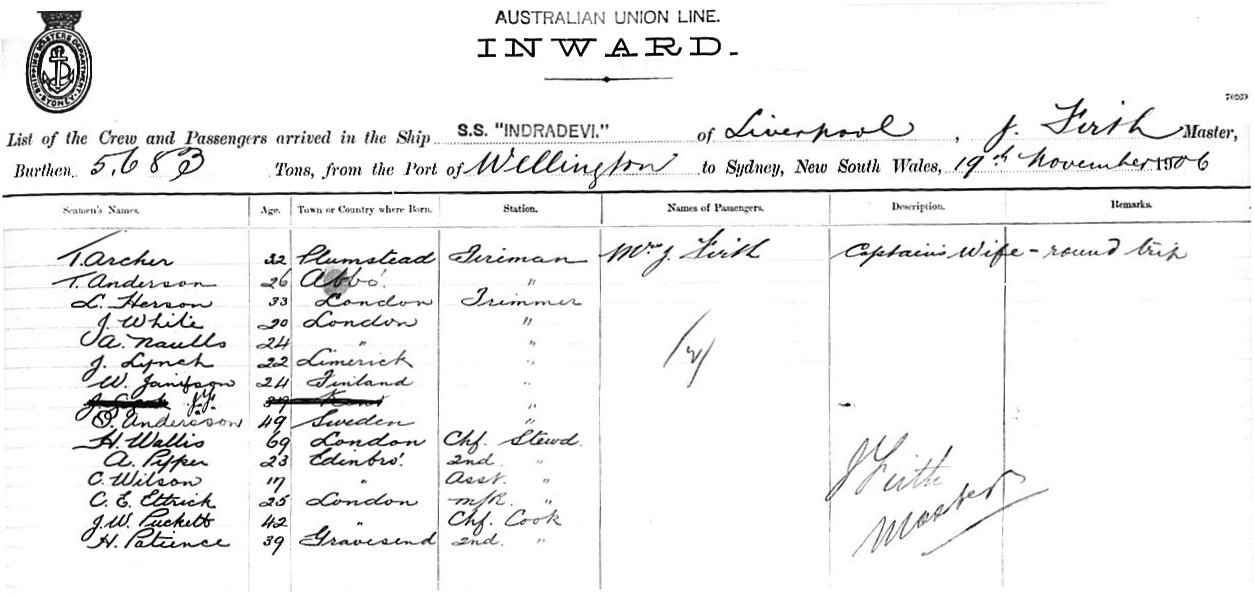 AUSTRALIAN UNION LINE.
INWARD.
SHIPPING MASTERS DEPARTMENT SYDNEY
70269
List of the Crew and Passengers arrived in the Ship S.S. "INDRADEVI." of Liverpool, J. Firth Master,
Burthen 5,683 Tons, from the Port of Wellington to Sydney, New South Wales, 19th November 1906
Seamen's Names. Age. Town or Country where Born. Station. Names of Passengers. Description. Remarks.
T. Archer 32 Plumstead Fireman Mrs J. Firth Captain's Wife - round trip
T. Anderson 26 Abbo'. "
L. Herson 33 London Trimmer
J. White 20 London "
A. Naulls 24 " "
J. Lynch 22 Limerick "
W. Janifson 24 Finland "
J.F. 39 Kent "
Andersson 49 Sweden "
H. Wallis 69 London Chf. Stewd.
A. Pipper 23 Edinbro'. 2nd. "
C. Wilson 17 " Asst. "
C. E. Ettrick 25 London M/R. "
J. W. Puckett 42 " Chf. Cook
H. Patience 39 Gravesend 2nd. "
J Firth
Master